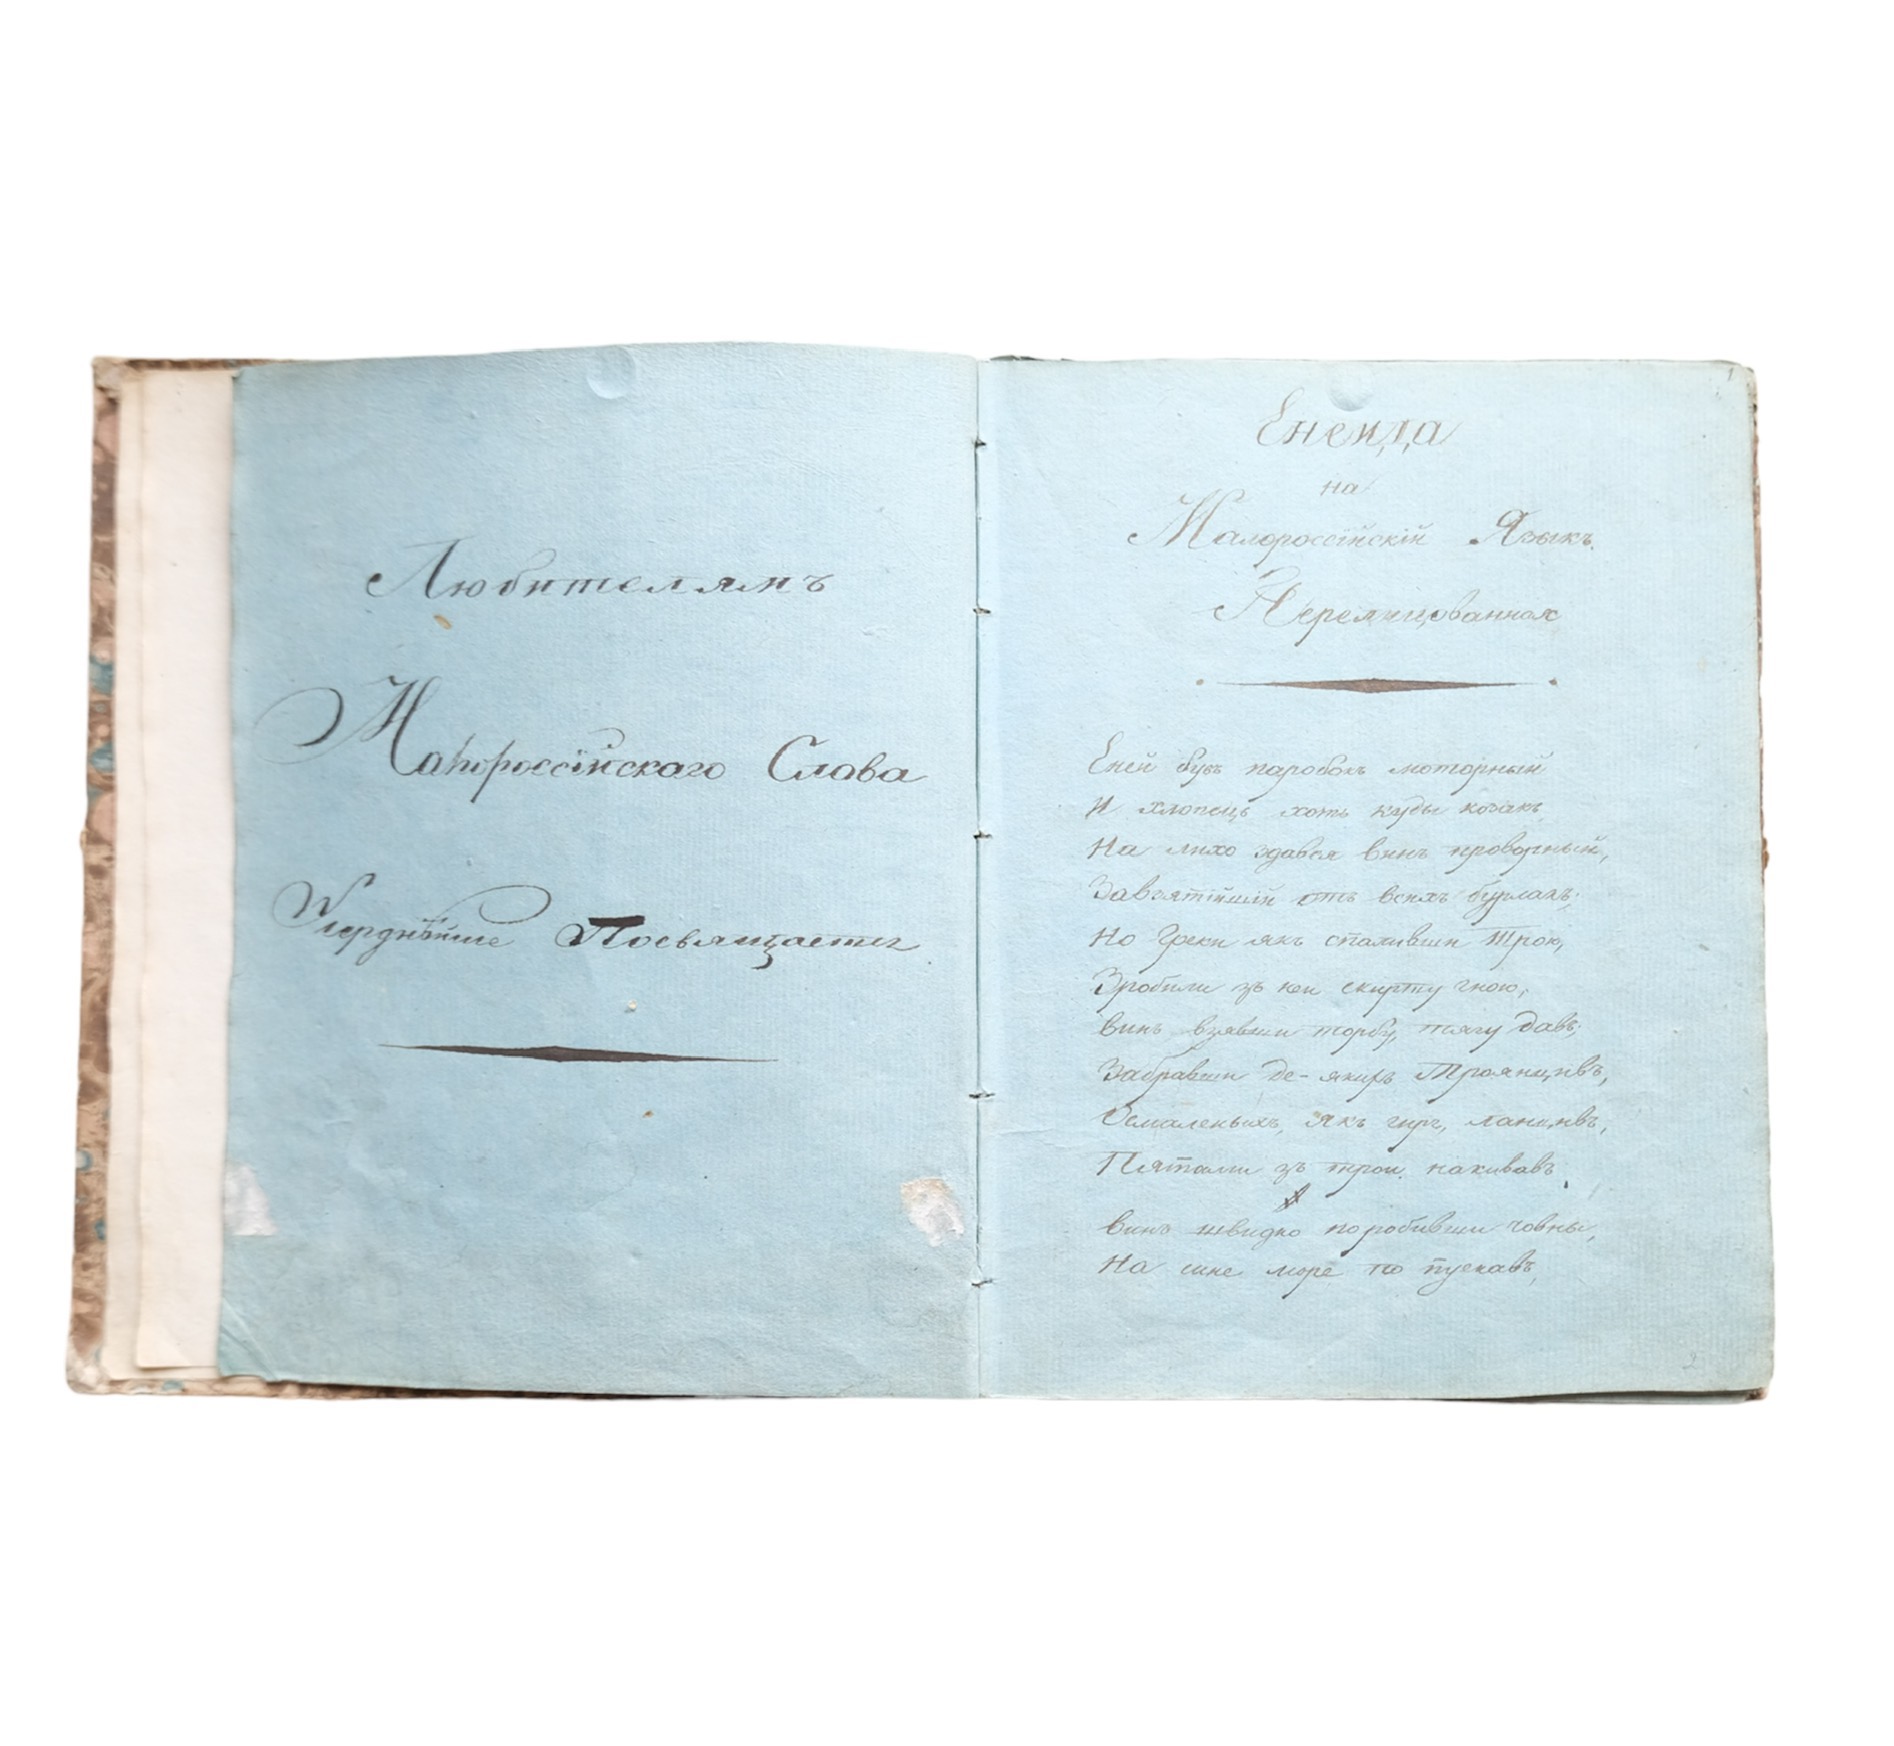 Любителямъ
Малороссійскаго Слова
Усерднѣйше Посвящается
1
Енеида
на
Малороссійскій Языкъ.
Перелицованная
Еней бувъ паробокъ моторный
И хлопець хоть куды козакъ
На лихо здався винъ проворный,
Завзятійшій отъ всихъ бурлакъ;
Но Греки якъ спаливши Трою,
Зробили зъ неи скирту гною;
Винъ взявши торбу, тягу давъ;
Забравши де-якихъ Троянцивъ,
Осмаленыхъ, якъ гиря, ланцивъ,
Пятами зъ трои накивавъ.
Винъ швидко поробивши човны,
На сине море по пускавъ,
2